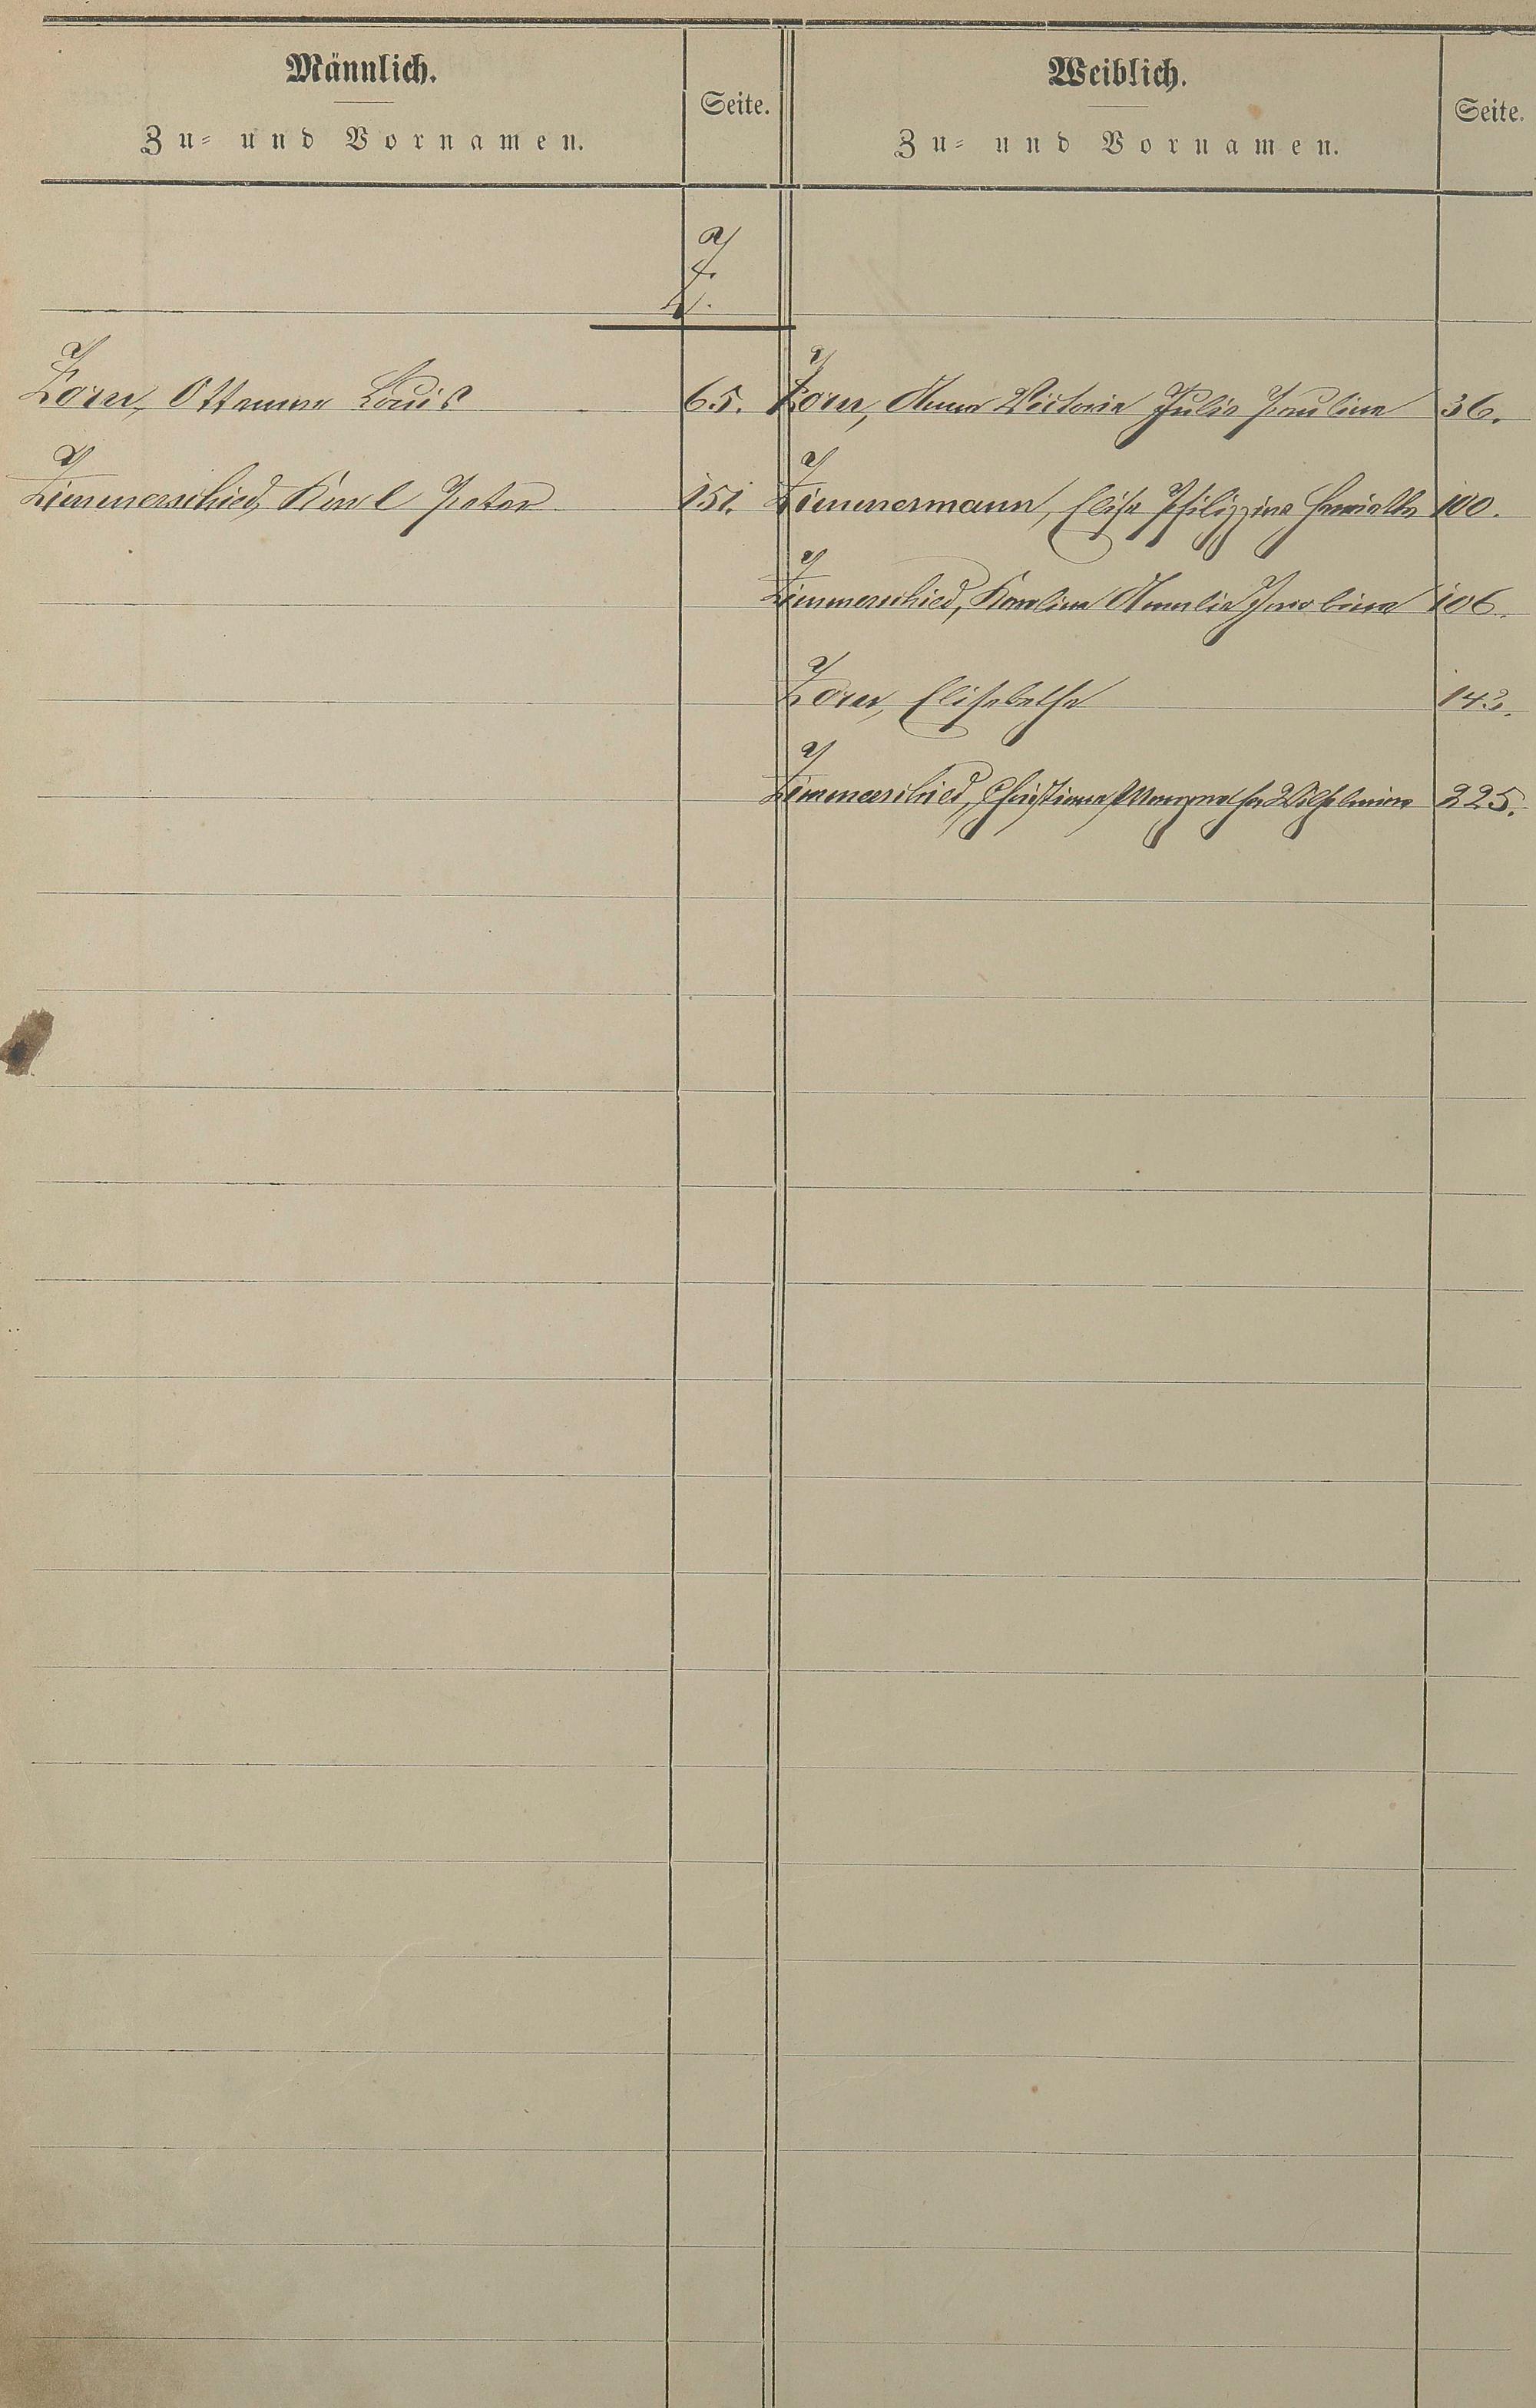 Männlich.
Zu- und Vornamen.
Seite.
Weiblich.
Zu- und Vornamen.
Seite.
Z.
Zorn, Ottomar Louis 65.
Zorn, Anna Victoria Julie Pauline 36.
Zimmerschied, Karl Peter 151.
Zimmermann, Elise Philippine Henriette 100.
Zimmerschied, Karoline Amalie Jacobine 106.
Zorn, Elisabethe 143.
Zimmerschied, Christiane Margarethe Wilhelmine 225.